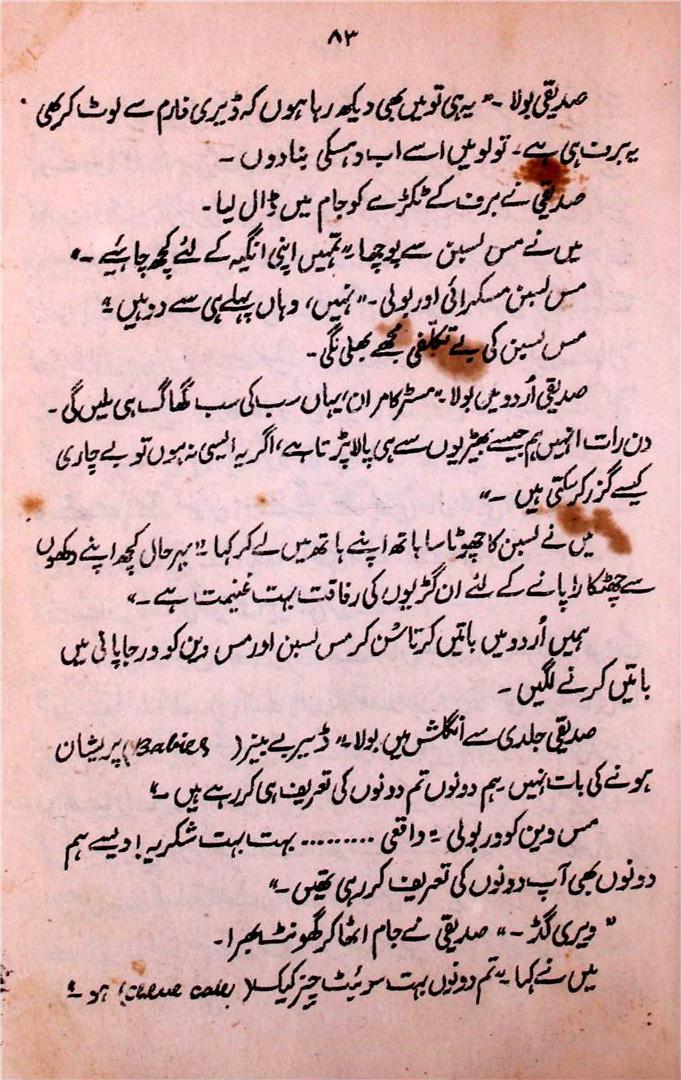 ۸۳
صدیقی بولا ۔" یہ ہی تو میں بھی دیکھ رہا ہوں کہ ڈیری فارم سے لوٹ کر بھی
یہ برف ہی ہے ۔ تو لو میں اسے اب وہسکی بنا دوں ۔
صدیقی نے برف کے ٹکڑے کو جام میں ڈال لیا۔
میں نے مس لسبن سے پوچھا ۔" تمہیں اپنی انگیہ کے لئے کچھ چاہئیے ۔"
مس لسبن مسکرائی اور بولی ۔" نہیں، وہاں پہلے ہی سے دو ہیں ۔"
مس لسبن کی بے تکلّفی مجھے بھلی لگی ۔
صدیقی اُردو میں بولا ۔" مسٹر کامران، یہاں سب کی سب گھاگ ہی ملیں گی ۔
دن رات انہیں ہم جیسے بھیڑیوں سے ہی پالا پڑتا ہے، اگر یہ ایسی نہ ہوں تو بے چاری
کیسے گزر کر سکتی ہیں ۔"
میں نے لسبن کا چھوٹا سا ہاتھ اپنے ہاتھ میں لے کر کہا ۔" بہر حال کچھ اپنے دکھوں
سے چھٹکارا پانے کے لئے ان گڑیوں کی رفاقت بہت غنیمت ہے ۔"
ہمیں اُردو میں باتیں کرتا سُن کر مس لسبن اور مس وین کوور جاپانی میں
باتیں کرنے لگیں ۔
صدیقی جلدی سے انگلش میں بولا ۔" ڈیر بے بیز (Babies) پریشان
ہونے کی بات نہیں ۔ ہم دونوں تم دونوں کی تعریف ہی کر رہے ہیں ۔"
مس وین کوور بولی ۔" واقعی ......... بہت بہت شکریہ! ویسے ہم
دونوں بھی آپ دونوں کی تعریف کر رہی تھیں ۔"
" ویری گڈ ۔" صدیقی نے جام اٹھا کر گھونٹ بھرا ۔
میں نے کہا ۔" تم دونوں بہت سوئیٹ چیز کیک ( cake) ہو ۔"